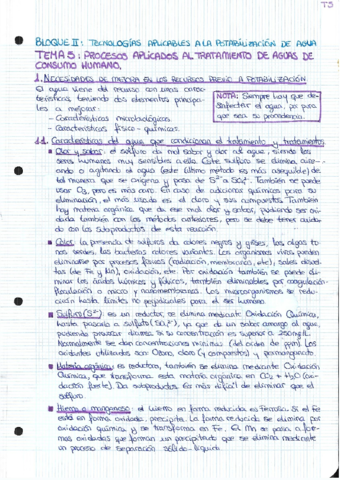 T5
BLOQUE II: TECNOLOGÍAS APLICABLES A LA POTABILIZACIÓN DE AGUA
TEMA 5: PROCESOS APLICADOS AL TRATAMIENTO DE AGUAS DE
CONSUMO HUMANO.
1. NECESIDADES DE MEJORA EN LOS RECURSOS PREVIO A POTABILIZACIÓN
El agua viene del recurso con unas carac-
terísticas, teniendo dos elementos principales
a mejorar:
- Características microbiológicas.
- Características físico-químicas.
NOTA: Siempre hay que de-
sinfectar el agua, da igual
sea su procedencia.
1.1. Características del agua que condicionan el tratamiento y tratamientos
Olor y sabor: el sulfuro da mal sabor y olor al agua, siendo los
seres humanos muy sensibles a ello. Este sulfuro se elimina aire-
ando o agitando el agua (este último método es más adecuado) de
tal manera que se oxigena y pasa de S²⁻ a SO₄²⁻. También se puede
usar O₃, pero es más caro. En caso de adicionar químicos para su
eliminación, el más usado es el cloro y sus compuestos. También
hay materia orgánica que da ese mal olor y sabor, pudiendo ser oxi-
dada también con los métodos anteriores, pero se debe tener cuida-
do con los subproductos de esta reacción.
Color: la presencia de sulfuros da colores negros y grises, las algas to-
nos verdes, las bacterias colores variantes. Los organismos vivos pueden
eliminarse por procesos físicos (radiación, membranas, etc), sales disuel-
tas (de Fe y Mn), oxidación, etc. Por oxidación también se puede eli-
minar los ácidos húmicos y fúlvicos, también eliminables por coagulación-
floculación o micro y nanomembranas. Los microorganismos se redu-
cirán hasta límites no perjudiciales para el ser humano.
Sulfuro (S²⁻): es un reductor, se elimina mediante Oxidación Química,
hasta pasarlo a sulfato (SO₄²⁻), ya que da un sabor amargo al agua,
pudiendo provocar diarrea si su concentración es superior a 250 mg/L.
Normalmente se dan concentraciones mínimas (del orden de ppm). Los
oxidantes utilizados son: Ozono, cloro (y compuestos) y permanganato.
Materia orgánica: es reductora, también se elimina mediante Oxidación
Química, que transforma esta materia orgánica en CO₂ + H₂O (oxi-
dación fuerte). Da subproductos. Es más difícil de eliminar que el
sulfuro.
Hierro o manganeso: el hierro en forma reducida es ferroso. Si el Fe
está en forma oxidada, precipita. La forma reducida se elimina por
oxidación química y se transforma en Fe. El Mn se pasa a for-
mas oxidadas que forman un precipitado que se elimina mediante
un proceso de separación sólido-líquido.